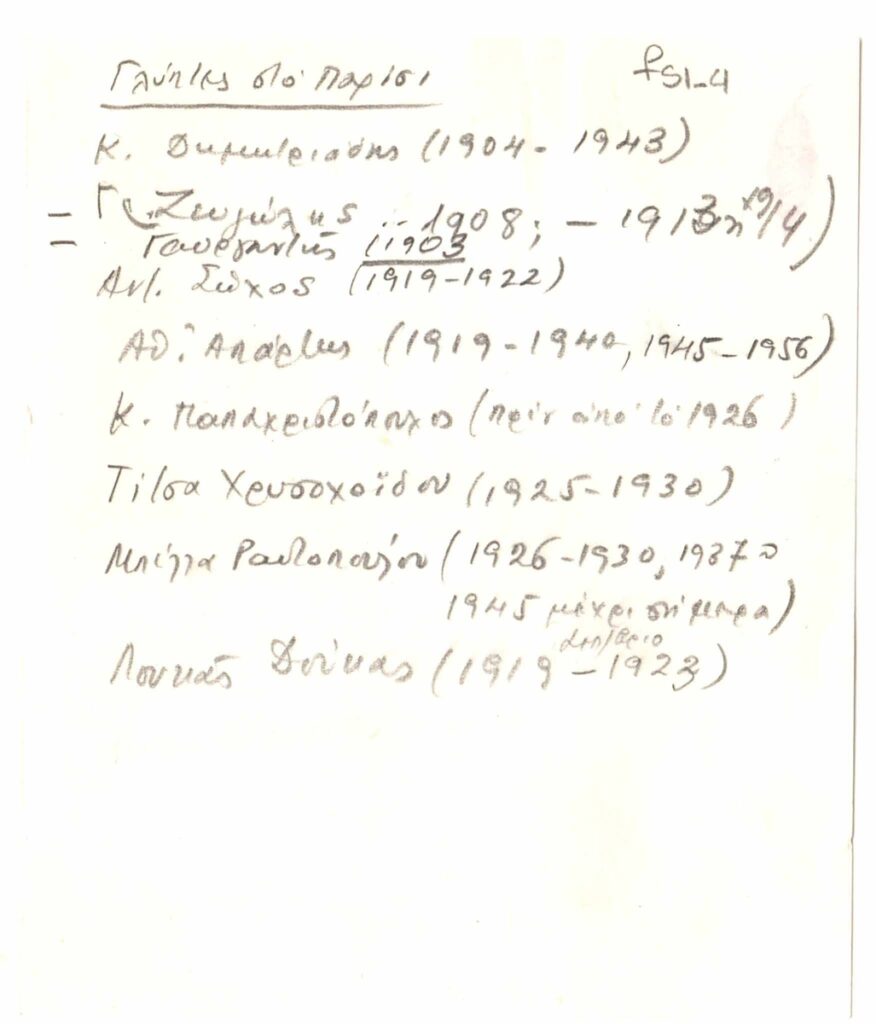 Γλύπτες στο Παρίσι
fSI-4
Κ. Δημητριάδης (1904 - 1943)
– Γ. Ζευγώλης .. 1908; – 1913 ή 19/4)
= Γεωργαντής (1903
Αντ. Σώχος (1919-1922)
Αθ. Απάρτης (1919-1940, 1945-1956)
Κ. Παπαχριστόπουλος (πριν από το 1926)
Τίτσα Χρυσοχοΐδου (1925-1930)
Μπέλλα Ραυτοπούλου (1926-1930, 1937
1945 μέχρι σήμερα)
Λουκάς Δούκας (1919 – 1923)